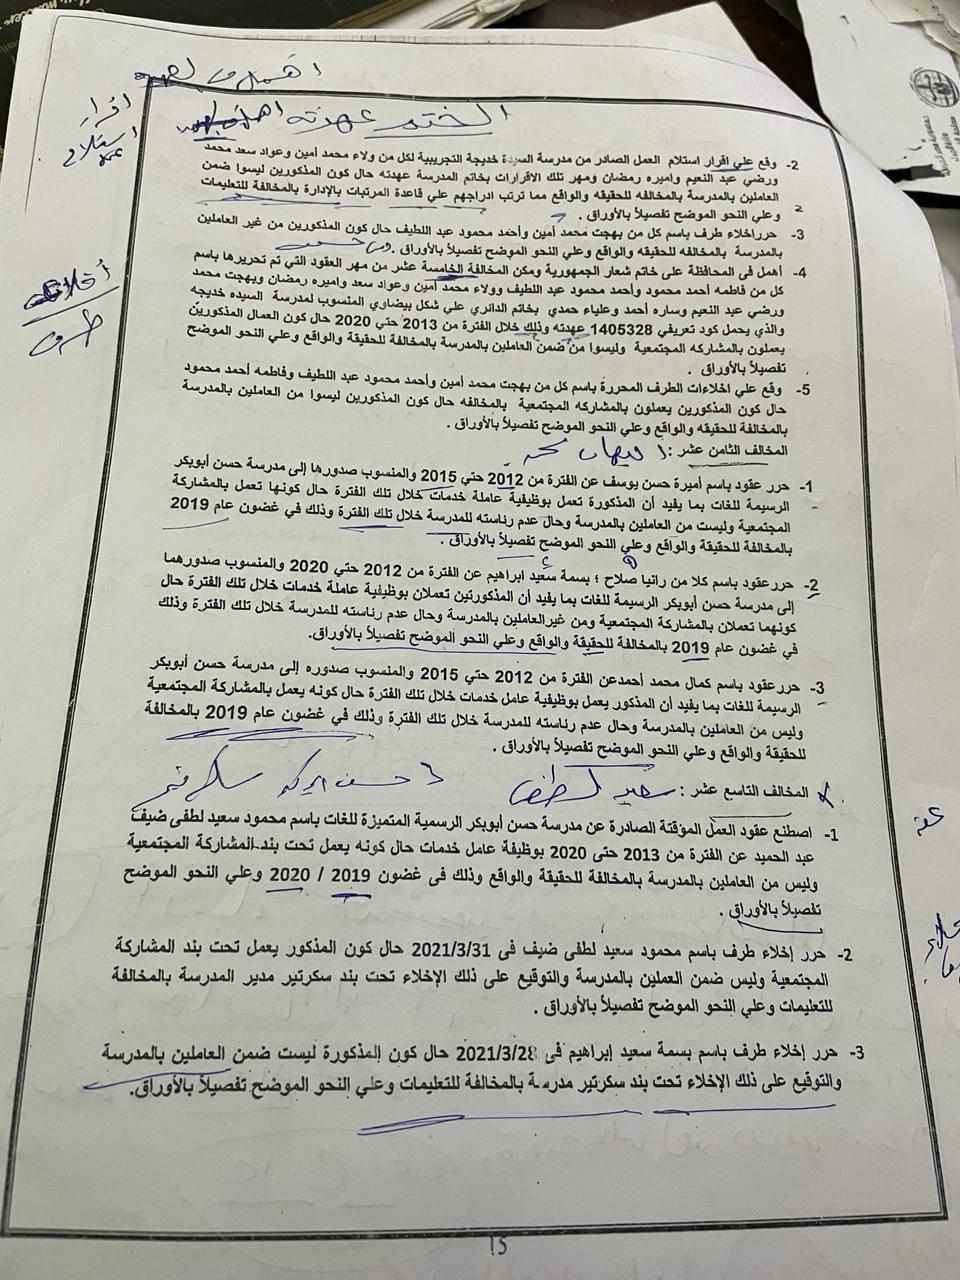 اهمل في
الختم عهدته
اقرار
استلام
2- وقع علي إقرار استلام العمل الصادر من مدرسة السيدة خديجة التجريبية لكل من ولاء محمد أمين وعواد سعد محمد
ورضي عبد النعيم واميره رمضان ومهر تلك الاقرارات بخاتم المدرسة عهدته حال كون المذكورين ليسوا ضمن
العاملين بالمدرسة بالمخالفه للحقيقه والواقع مما ترتب ادراجهم علي قاعدة المرتبات بالإدارة بالمخالفة للتعليمات
وعلي النحو الموضح تفصيلاً بالأوراق .
3- حرر اخلاء طرف باسم كل من بهجت محمد أمين وأحمد محمود عبد اللطيف حال كون المذكورين من غير العاملين
بالمدرسة بالمخالفه للحقيقه والواقع وعلي النحو الموضح تفصيلاً بالأوراق .
4- أهمل فى المحافظة على خاتم شعار الجمهورية ومكن المخالفة الخامسة عشر من مهر العقود التي تم تحريرها باسم
كل من فاطمه أحمد محمود وأحمد محمود عبد اللطيف وولاء محمد أمين وعواد سعد واميره رمضان وبهجت محمد
ورضي عبد النعيم وساره أحمد وعلياء حمدي بخاتم الدائري علي شكل بيضاوي المنسوب لمدرسة السيده خديجه
والذي يحمل كود تعريفي 1405328 عهدته وذلك خلال الفترة من 2013 حتي 2020 حال كون العمال المذكورين
يعملون بالمشاركه المجتمعية وليسوا من ضمن العاملين بالمدرسة بالمخالفة للحقيقة والواقع وعلي النحو الموضح
تفصيلاً بالأوراق .
طرف
5- وقع علي اخلاءات الطرف المحررة باسم كل من بهجت محمد أمين وأحمد محمود عبد اللطيف وفاطمه أحمد محمود
حال كون المذكورين يعملون بالمشاركه المجتمعية بالمخالفه حال كون المذكورين ليسوا من العاملين بالمدرسة
بالمخالفة للحقيقه والواقع وعلي النحو الموضح تفصيلاً بالأوراق .
المخالف الثامن عشر :
1- حرر عقود باسم أميرة حسن يوسف عن الفترة من 2012 حتي 2015 والمنسوب صدورها إلى مدرسة حسن أبوبكر
الرسيمة للغات بما يفيد أن المذكورة تعمل بوظيفية عاملة خدمات خلال تلك الفترة حال كونها تعمل بالمشاركة
المجتمعية وليست من العاملين بالمدرسة وحال عدم رناسته للمدرسة خلال تلك الفترة وذلك في غضون عام 2019
بالمخالفة للحقيقة والواقع وعلي النحو الموضح تفصيلاً بالأوراق .
2- حرر عقود باسم كلا من رانيا صلاح ؛ بسمة سعيد ابراهيم عن الفترة من 2012 حتي 2020 والمنسوب صدورهما
إلى مدرسة حسن أبوبكر الرسيمة للغات بما يفيد أن المذكورتين تعملان بوظيفية عاملة خدمات خلال تلك الفترة حال
كونهما تعملان بالمشاركة المجتمعية ومن غيرالعاملين بالمدرسة وحال عدم رناسته للمدرسة خلال تلك الفترة وذلك
في غضون عام 2019 بالمخالفة للحقيقة والواقع وعلي النحو الموضح تفصيلاً بالأوراق.
3- حرر عقود باسم كمال محمد أحمدعن الفترة من 2012 حتي 2015 والمنسوب صدوره إلى مدرسة حسن أبوبكر
الرسيمة للغات بما يفيد أن المذكور يعمل بوظيفية عامل خدمات خلال تلك الفترة حال كونه يعمل بالمشاركة المجتمعية
وليس من العاملين بالمدرسة وحال عدم رناسته للمدرسة خلال تلك الفترة وذلك في غضون عام 2019 بالمخالفة
للحقيقة والواقع وعلي النحو الموضح تفصيلاً بالأوراق .
المخالف التاسع عشر :
1- اصطنع عقود العمل المؤقتة الصادرة عن مدرسة حسن أبوبكر الرسمية المتميزة للغات باسم محمود سعيد لطفى ضيف
عبد الحميد عن الفترة من 2013 حتى 2020 بوظيفة عامل خدمات حال كونه يعمل تحت بند المشاركة المجتمعية
وليس من العاملين بالمدرسة بالمخالفة للحقيقة والواقع وذلك فى غضون 2019 / 2020 وعلي النحو الموضح
تفصيلاً بالأوراق .
2- حرر إخلاء طرف باسم محمود سعيد لطفى ضيف فى 2021/3/31 حال كون المذكور يعمل تحت بند المشاركة
المجتمعية وليس ضمن العملين بالمدرسة والتوقيع على ذلك الإخلاء تحت بند سكرتير مدير المدرسة بالمخالفة
للتعليمات وعلي النحو الموضح تفصيلاً بالأوراق .
3- حرر إخلاء طرف باسم بسمة سعيد إبراهيم فى 2021/3/28 حال كون المذكورة ليست ضمن العاملين بالمدرسة
والتوقيع على ذلك الإخلاء تحت بند سكرتير مدرسة بالمخالفة للتعليمات وعلي النحو الموضح تفصيلاً بالأوراق.
15